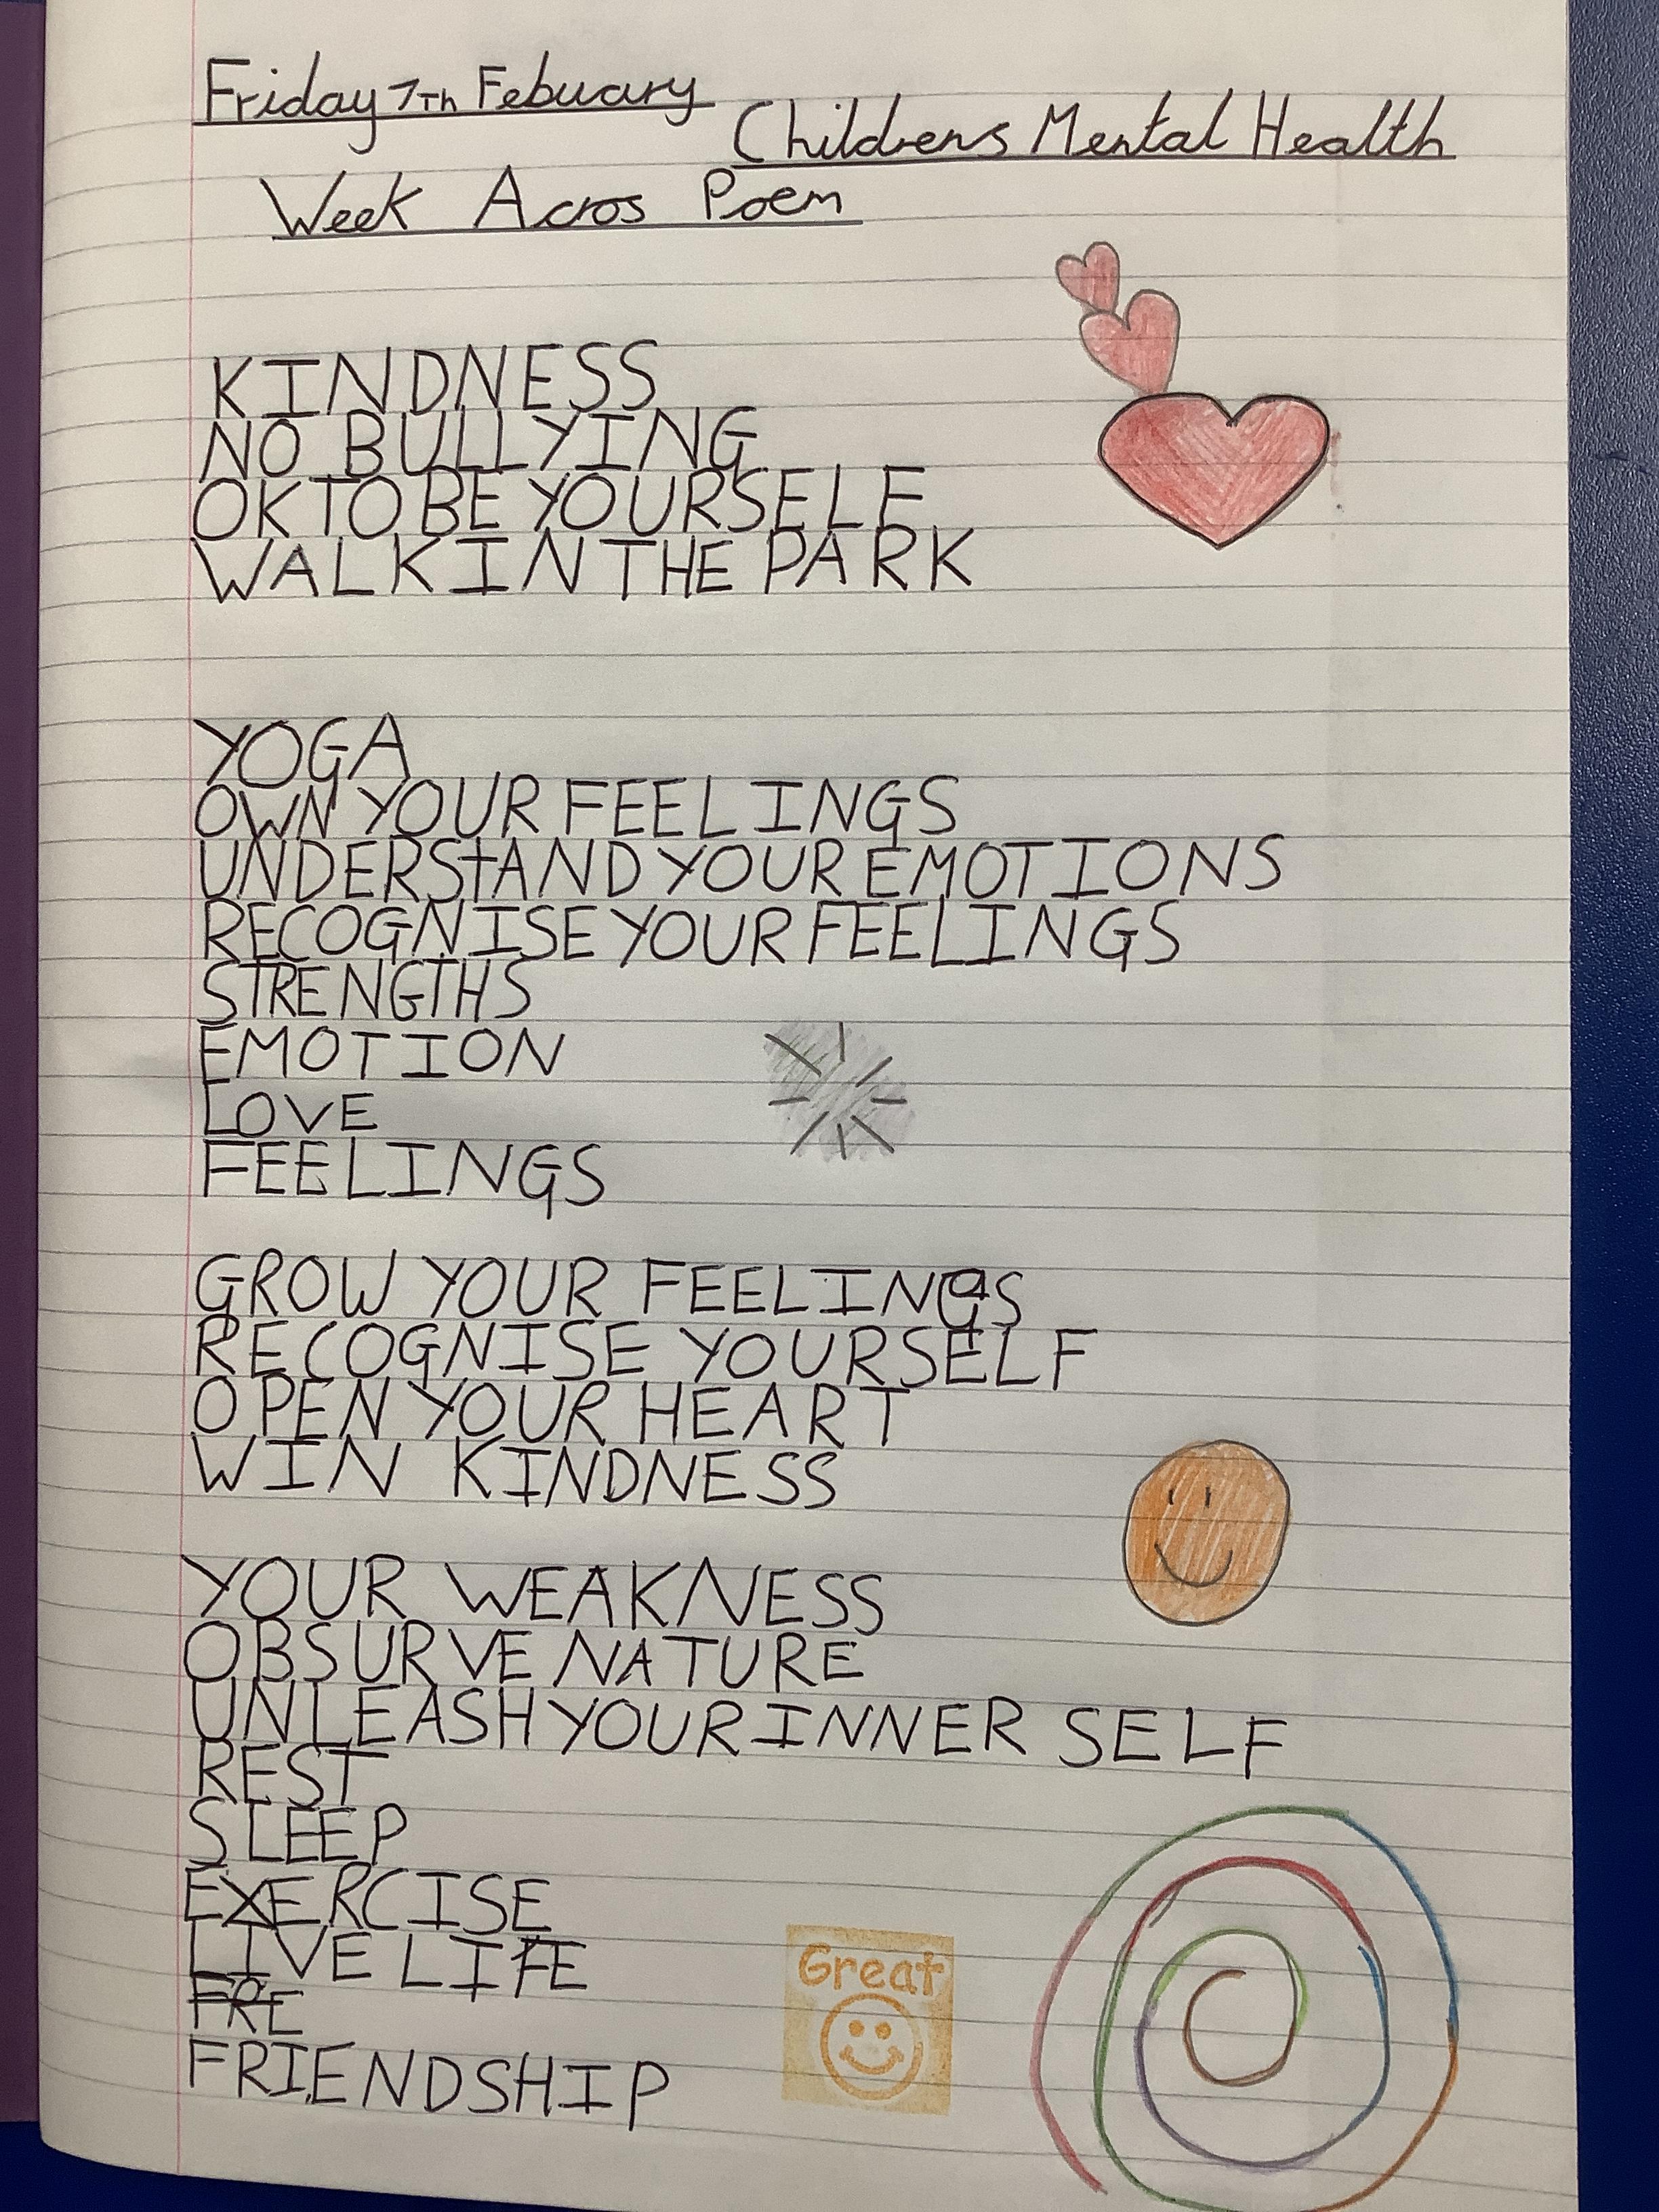 Friday 7Th Febuary
Childrens Mental Health
Week Acros Poem
KINDNESS
NO BULLYING
OK TO BE YOURSELF
WALK IN THE PARK
YOGA
OWN YOUR FEELINGS
UNDERSTAND YOUR EMOTIONS
RECOGNISE YOUR FEELINGS
STRENGTHS
EMOTION
LOVE
FEELINGS
GROW YOUR FEELINGS
RECOGNISE YOURSELF
OPEN YOUR HEART
WIN KINDNESS
YOUR WEAKNESS
OBSURVE NATURE
UNLEASH YOUR INNER SELF
REST
SLEEP
EXERCISE
LIVE LIFE
FRE
FRIENDSHIP
Great